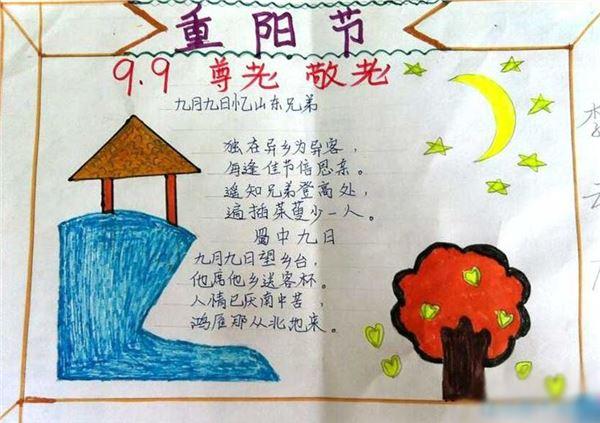 重阳节
9.9 尊老 敬老
九月九日忆山东兄弟
独在异乡为异客,
每逢佳节倍思亲。
遥知兄弟登高处,
遍插茱萸少一人。
蜀中九日
九月九日望乡台,
他席他乡送客杯。
人情已厌南中苦,
鸿雁那从北地来。